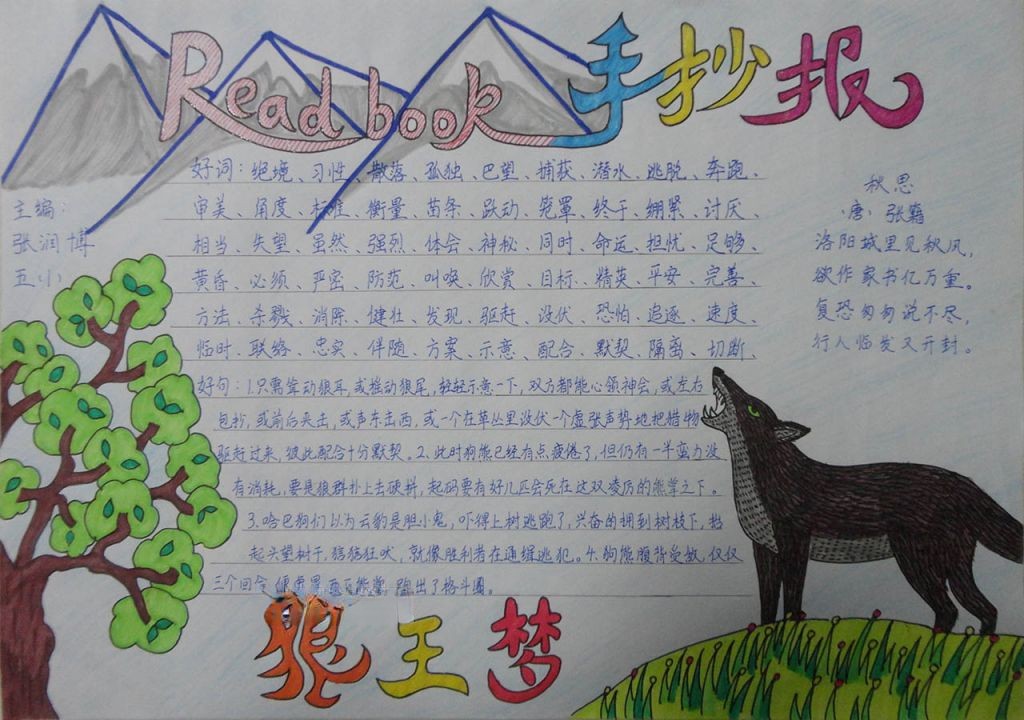 Read book 手抄报
主编:
张润博
五小
好词：绝境、习性、散落、孤独、巴望、捕获、潜水、逃脱、奔跑、
审美、角度、标准、衡量、苗条、跃动、笼罩、终于、绷紧、讨厌、
相当、失望、虽然、强烈、体会、神秘、同时、命运、担忧、足够、
黄昏、必须、严密、防范、叫唤、欣赏、目标、精英、平安、完善、
方法、杀戮、消除、健壮、发现、驱赶、没伏、恐怕、追逐、速度、
临时、联络、忠实、伴随、方案、示意、配合、默契、隔离、切断、
好句：1.只需耸动狼耳,或摇动狼尾,轻轻示意一下,双方都能心领神会,或左右
包抄,或前后夹击,或声东击西,或一个在草丛里没伏一个虚张声势地把猎物
驱赶过来,彼此配合十分默契。2.此时狗熊已经有点疲倦了,但仍有一半蛮力没
有消耗,要是狼群扑上去硬拼,起码要有好几匹会死在这双凌厉的熊掌之下。
3.哈巴狗们以为云豹是胆小鬼,吓得上树逃跑了,兴奋的拥到树枝下,抬
起头望树干,狺狺狂吠,就像胜利者在通缉逃犯。4.狗熊腹背受敌,仅仅
三个回合 出了格斗圈。
秋思
(唐) 张籍
洛阳城里见秋风,
欲作家书亿万重。
复恐匆匆说不尽,
行人临发又开封。
狼王梦